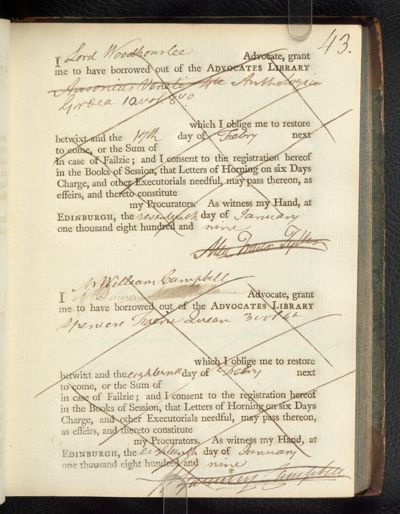 43.
I Lord Woodhouselee Advocate, grant
me to have borrowed out of the ADVOCATES LIBRARY
Ausonius Veneti Anthologia
Græca 10 vol 8vo
which I oblige me to restore
betwixt and the 17th day of Febry next
to come, or the Sum of
in case of Failzie; and I consent to the registration hereof
in the Books of Session, that Letters of Horning on six Days
Charge, and other Executorials needful, may pass thereon, as
effeirs, and thereto constitute
my Procurators. As witness my Hand, at
EDINBURGH, the seventeenth day of January
one thousand eight hundred and nine
Alex Fraser Tytler
Mr William Campbell
I Advocate, grant
me to have borrowed out of the ADVOCATES LIBRARY
Spencers Faerie Queen 3
which I oblige me to restore
betwixt and the eighteenth day of Febry next
to come, or the Sum of
in case of Failzie; and I consent to the registration hereof
in the Books of Session, that Letters of Horning on six Days
Charge, and other Executorials needful, may pass thereon,
as effeirs, and thereto constitute
my Procurators. As witness my Hand, at
EDINBURGH, the eighteenth day of January
one thousand eight hundred and nine
Campbell